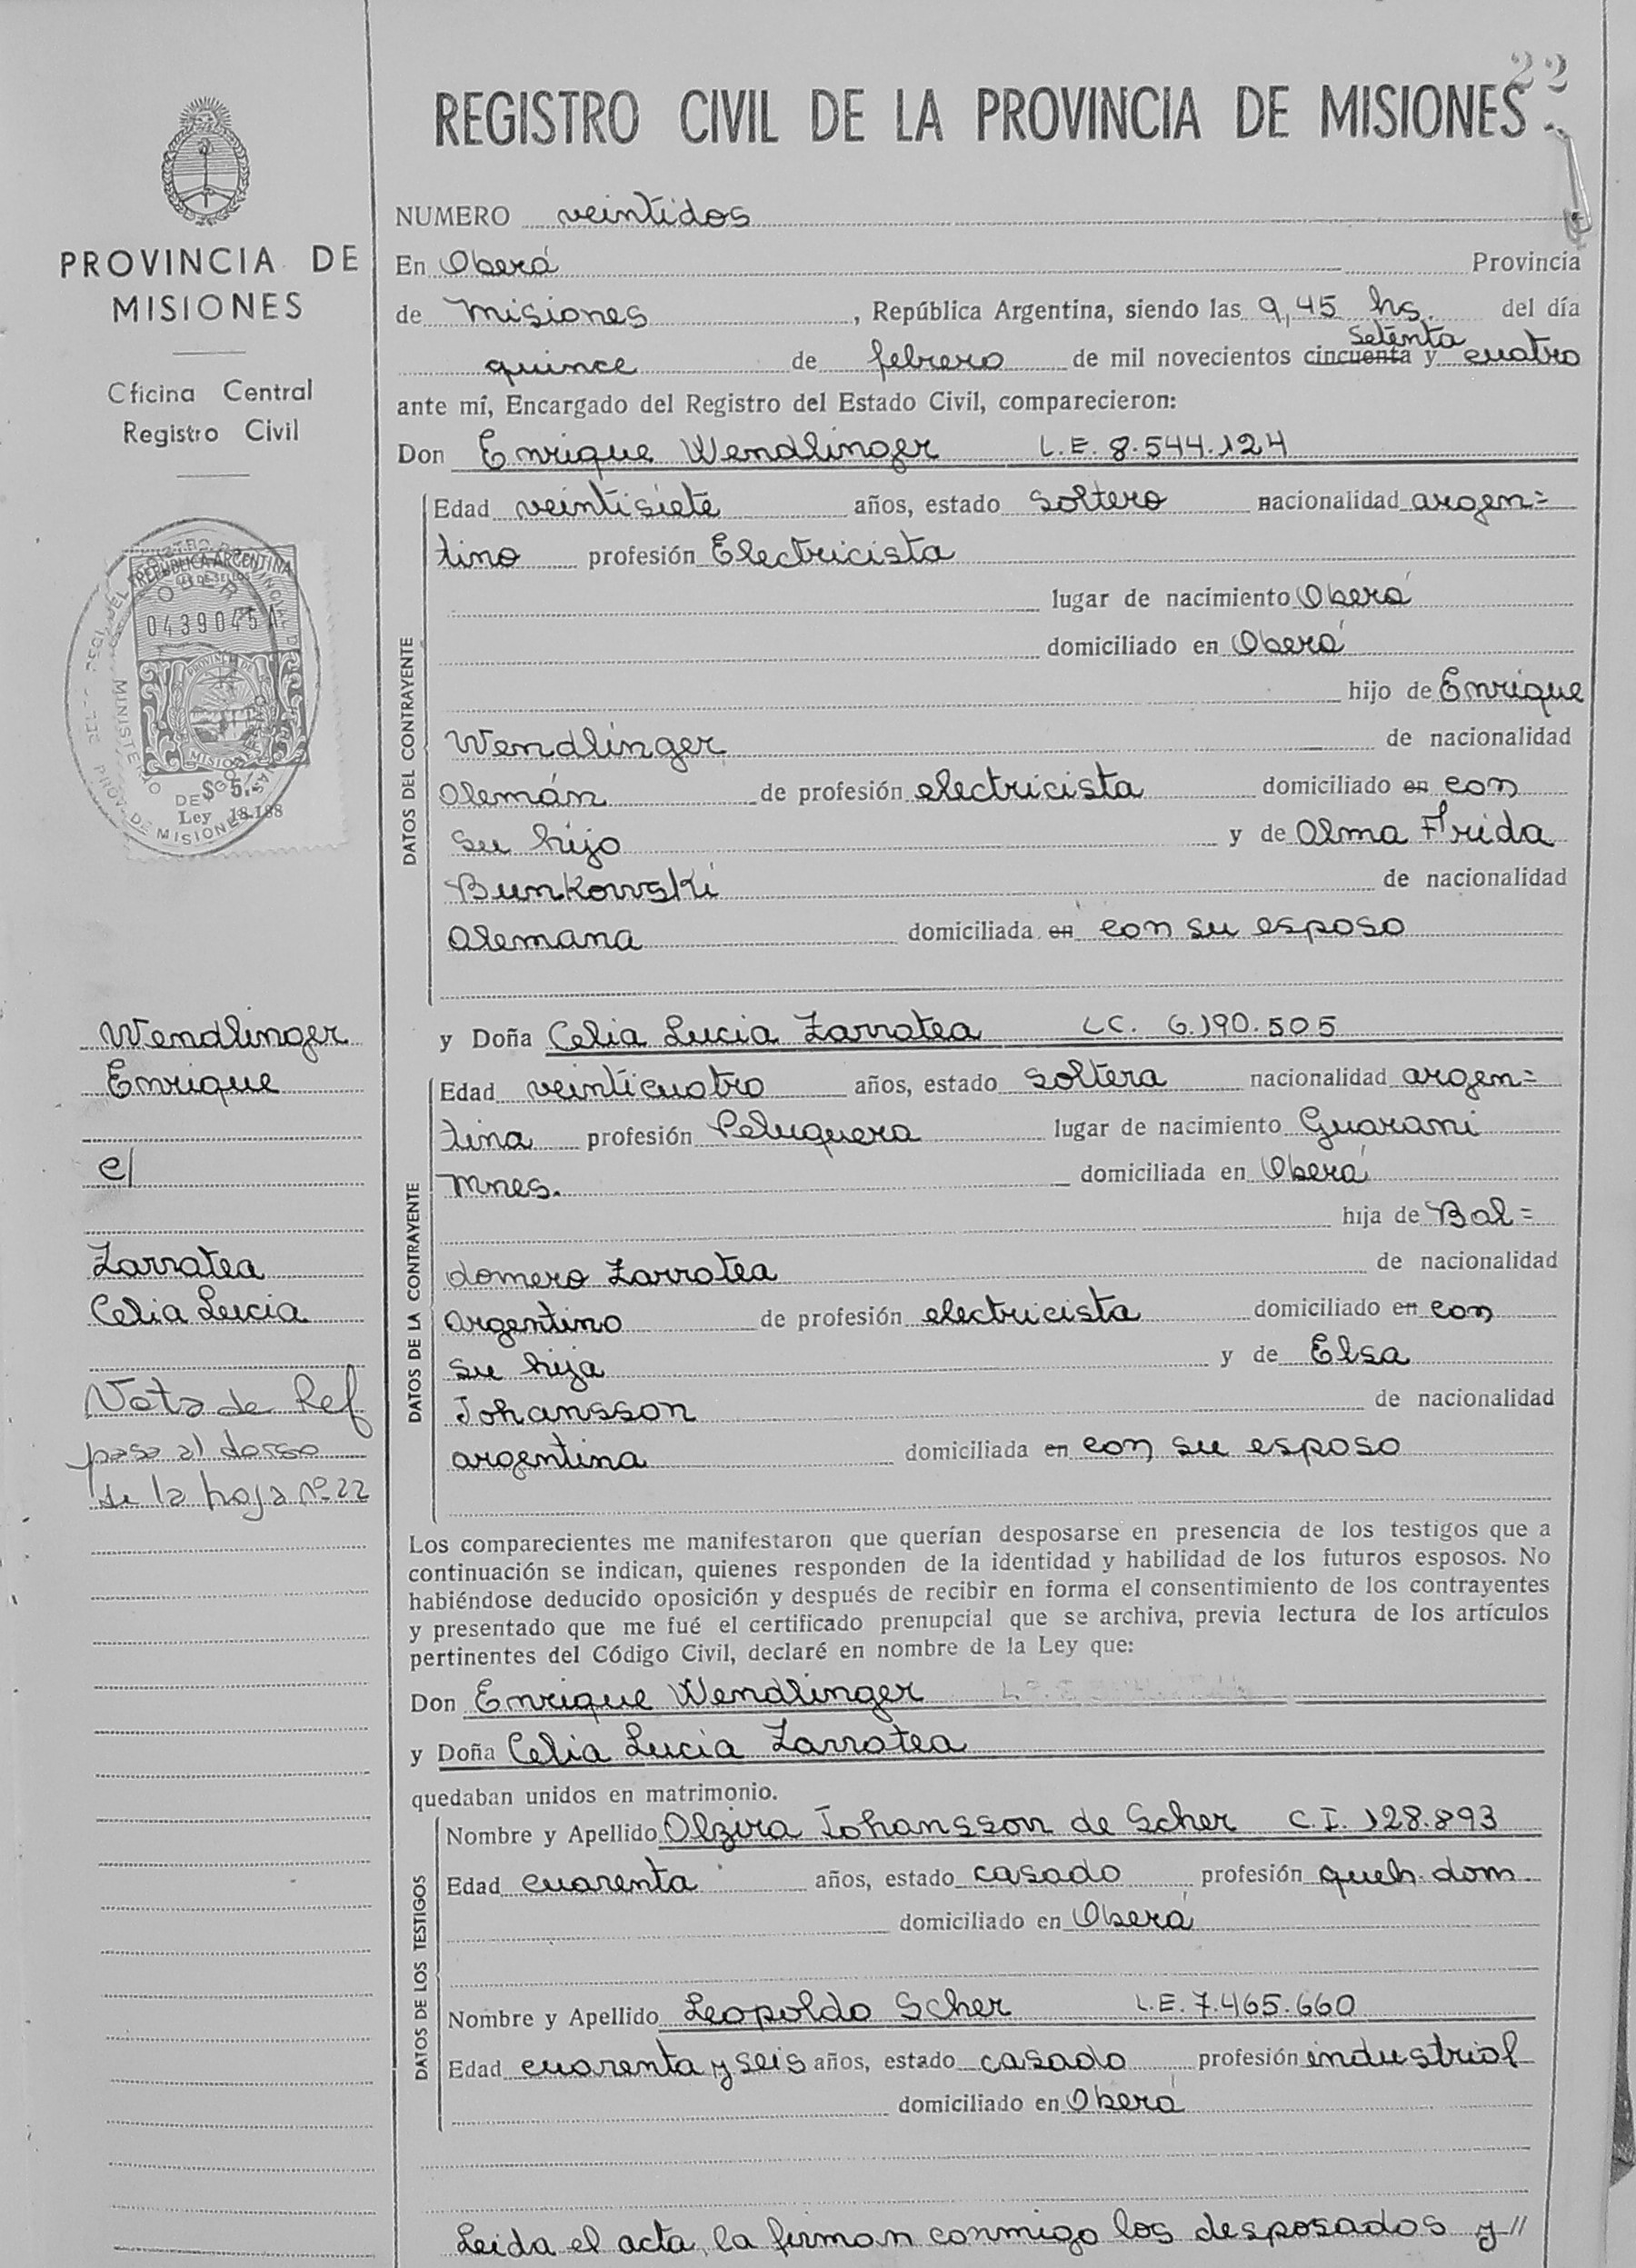 22
REGISTRO CIVIL DE LA PROVINCIA DE MISIONES
PROVINCIA DE
MISIONES
Oficina Central
Registro Civil
REPUBLICA ARGENTINA
LEY DE SELLOS
0439045 A
PROVINCIA DE
MISIONES
$ 5.-
Ley 18.188
NUMERO veintidos
En Oberá Provincia
de Misiones, República Argentina, siendo las 9,45 hs. del día
setenta
quince de febrero de mil novecientos cincuenta y cuatro
ante mí, Encargado del Registro del Estado Civil, comparecieron:
Don Enrique Wendlinger L.E. 8.544.124
DATOS DEL CONTRAYENTE
Edad veintisiete años, estado soltero nacionalidad argen=
tino profesión Electricista
lugar de nacimiento Oberá
domiciliado en Oberá
hijo de Enrique
Wendlinger de nacionalidad
Alemán de profesión electricista domiciliado en con
su hijo y de Alma Frida
Bunkowski de nacionalidad
Alemana domiciliada en con su esposo
y Doña Celia Lucia Zarratea LC. 6.190.505
DATOS DE LA CONTRAYENTE
Edad veinticuatro años, estado soltera nacionalidad argen=
tina profesión Peluquera lugar de nacimiento Guarani
Mnes. domiciliada en Oberá
hija de Bal=
domero Zarratea de nacionalidad
Argentino de profesión electricista domiciliado en con
su hija y de Elsa
Johansson de nacionalidad
argentina domiciliada en con su esposo
Wendlinger
Enrique
c/
Zarratea
Celia Lucia
Nota de Ref
pasa al dorso
de la hoja nº 22
Los comparecientes me manifestaron que querían desposarse en presencia de los testigos que a
continuación se indican, quienes responden de la identidad y habilidad de los futuros esposos. No
habiéndose deducido oposición y después de recibir en forma el consentimiento de los contrayentes
y presentado que me fué el certificado prenupcial que se archiva, previa lectura de los artículos
pertinentes del Código Civil, declaré en nombre de la Ley que:
Don Enrique Wendlinger
y Doña Celia Lucia Zarratea
quedaban unidos en matrimonio.
DATOS DE LOS TESTIGOS
Nombre y Apellido Olzira Johansson de Scher C.I. 128.893
Edad cuarenta años, estado casado profesión queh. dom.
domiciliado en Oberá
Nombre y Apellido Leopoldo Scher L.E. 7.465.660
Edad cuarenta y seis años, estado casado profesión industrial
domiciliado en Oberá
Leida el acta, la firman conmigo los desposados y //